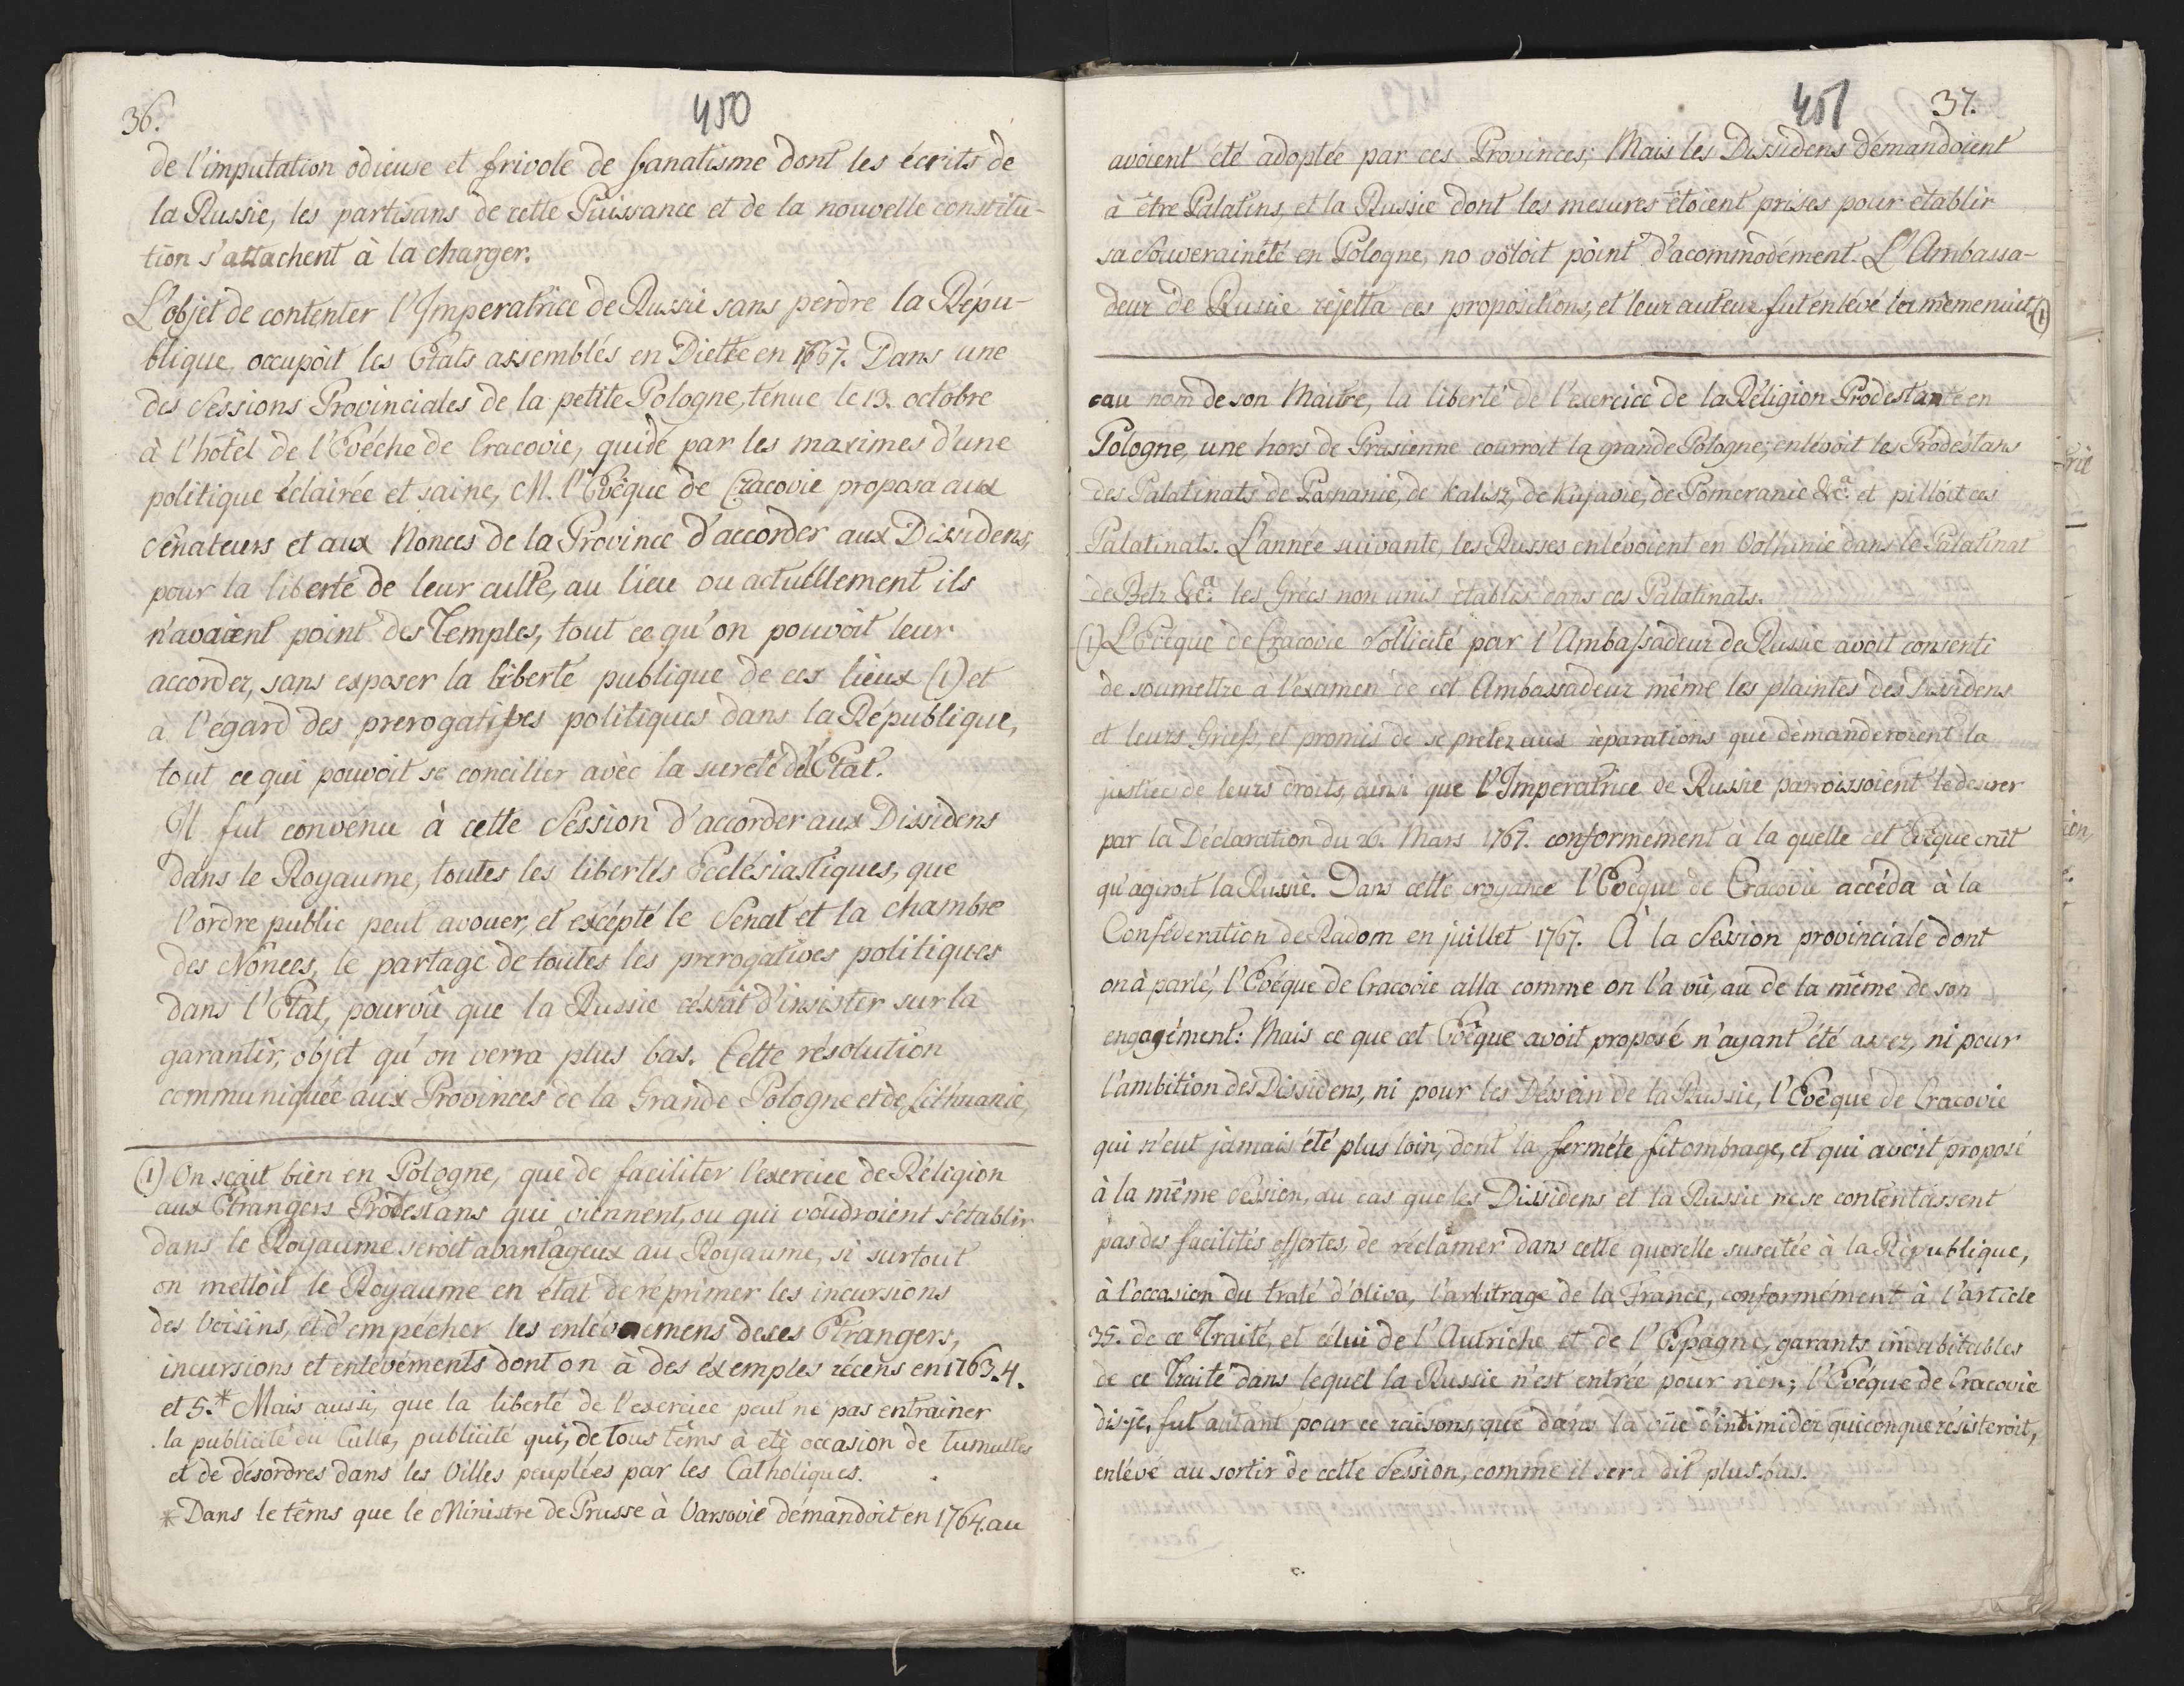 36.
450
de l'imputation odieuse et frivole de fanatisme dont les écrits de
la Russie, les partisans de cette Puissance et de la nouvelle constitu-
tion s'attachent à la charger.
L'objet de contenter l'Imperatrice de Russie sans perdre la Répu-
blique, occupoit les Etats assemblés en Diette en 1767. Dans une
des Sessions Provinciales de la petite Pologne, tenue le 13. octobre
à l'hôtel de l'Evéche de Cracovie, guidé par les maximes d'une
politique éclairée et saine, M. l'Evêque de Cracovie proposa aux
Sénateurs et aux Nonces de la Province d'accorder aux Dissidens,
pour la liberté de leur culte, au lieu ou actuéllement ils
n'avaient point des Temples, tout ce qu'on pouvoit leur
accorder, sans exposer la liberté publique de ces lieux (1) et
a l'égard des prerogatives politiques dans la République,
tout ce qui pouvoit se concilier avèc la sureté de l'Etat.
Il fut convénu à cette Session d'accorder aux Dissidens
dans le Royaume, toutes les libertés Ecclésiastiques, que
l'ordre public peut avouer, et excépté le Senat et la chambre
des Nonces, le partage de toutes les prerogatives politiques
dans l'Etat, pourvû que la Russie cessât d'insister sur la
garantir, objet qu'on verra plus bas. Cette résolution
communiquée aux Provinces de la Grande Pologne et de Lithuanie,
(1) On sçait bien en Pologne, que de faciliter l'exercice de Réligion
aux Etrangers Protestans qui viennent, ou qui voudroient s'établir
dans le Royaume seroit avantageux au Royaume, si surtout
on mettoit le Royaume en état de réprimer les incursions
des Voisins, et d'empécher les enlévemens de ses Etrangers,
incursions et enlevéments dont on à des éxemples récens en 1763. 4.
et 5.* Mais aussi, que la liberté de l'exercice peut ne pas entrainer
la publicité du Culte, publicité qui, de tous têms à eté occasion de tumultes
et de désordres dans les Villes peuplées par les Catholiques.
* Dans le têms que le Ministre de Prusse à Varsovie démandoit en 1764. au
451
37.
avoient été adoptée par ces Provinces; Mais les Dissidens démandoient
à être Palatins, et la Russie dont les mesures étoient prises pour établir
sa Souveraineté en Pologne, no voloit point d'acommodément. L'Ambassa-
deur de Russie réjetta ces propositions, et leur auteur fut enlévé la même nuit (1)
au nom de son Maitre, la liberté de l'exercice de la Réligion Prodestante en
Pologne, une hors de Prusienne courroit la grande Pologne; enlevoit les Prodestans
des Palatinats de Posnanie, de Kalisz, de Kujavie, de Pomeranie &ca. et pilloit ces
Palatinats. L'année suivante, les Russes enlévoient en Volhinie dans le Palatinat
de Belz &ca. les Grécs non unis établis dans ces Palatinats.
(1) L'Evêque de Cracovie sollicité par l'Ambassadeur de Russie avoit consenti
de soumettre à l'examen de cet Ambassadeur même les plaintes des Dissidens
et leurs Griefs, et promis de se preter aux réparations que démanderoient la
justice de leurs droits, ainsi que l'Imperatrice de Russie parroissoient le desirer
par la Déclaration du 26. Mars 1767. conformément à la quelle cet Evêque crût
qu'agiroit la Russie. Dans cette croyance l'Evêque de Cracovie accéda à la
Conféderation de Radom en juillet 1767. A la Session provinciale dont
on à parlé, l'Evéque de Cracovie alla comme on l'a vû, au de la même de son
engagément: Mais ce que cet Evêque avoit proposé n'ayant été assez, ni pour
l'ambition des Dissidens, ni pour les Déssein de la Russie, l'Evêque de Cracovie
qui n'eut jamais été plus loin, dont la ferméte fit ombrage, et qui avoit proposé
à la même Séssion, au cas que les Dissidens et la Russie ne se contentassent
pas des facilités offertes, de réclamer dans cette querelle suscitée à la République,
à l'occasion du traté d'Oliva, l'arbitrage de la France, conformément à l'article
35. de ce Traité, et célui de l'Autriche et de l'Espagne, garants indubitables
de ce Traité dans lequel la Russie n'est entrée pour rien; l'Evéque de Cracovie
dis-je, fut autant pour ce raisons, que dans la vüe d'intimider quiconque résisteroit,
enlévé au sortir de cette Session, comme il sera dit plus bas.